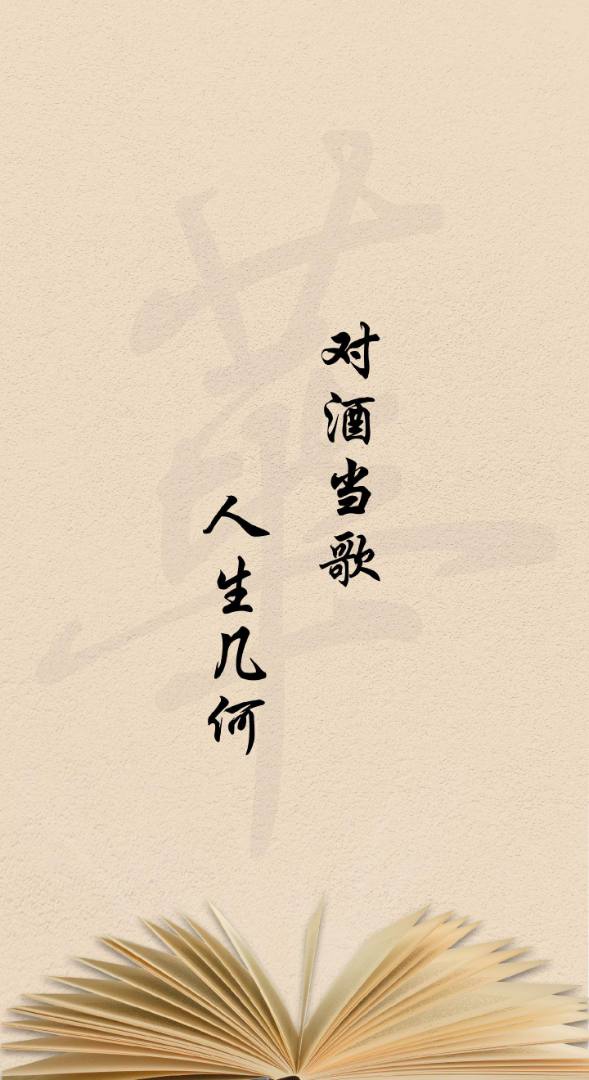 对酒当歌
人生几何
華